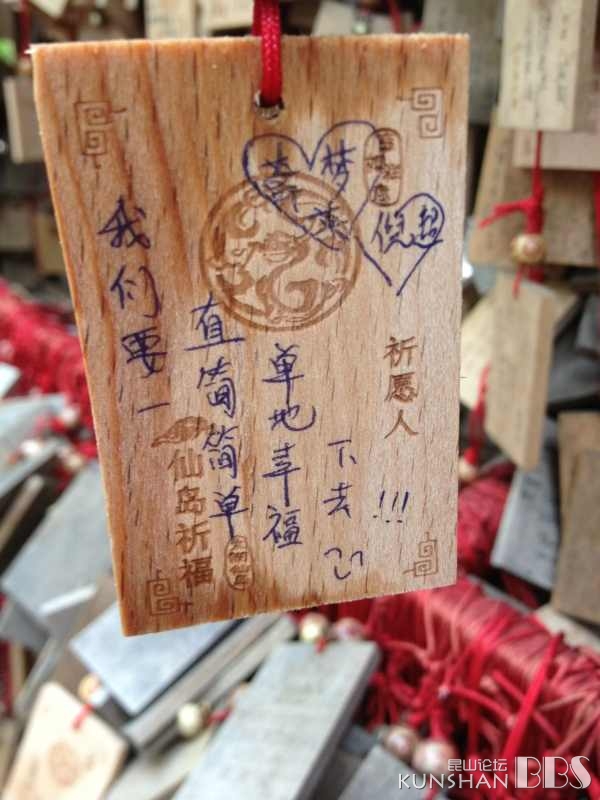 梦
倪超
我们要一
直简简单
单地幸福
下去
!!!
祈愿人
仙岛祈福
昆山论坛
KUNSHAN BBS